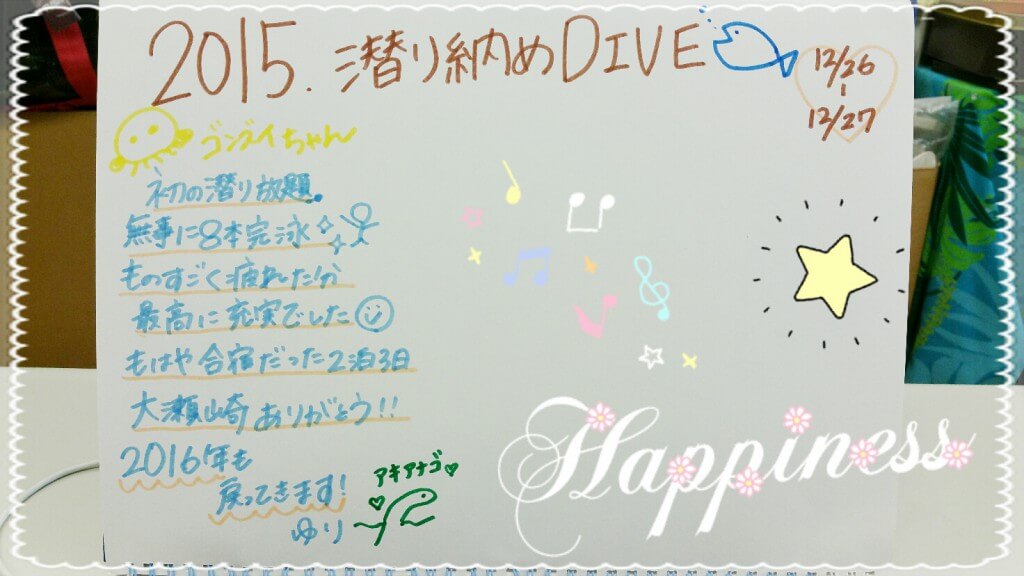 2015. 潜り納めDIVE
12/26
-
12/27
ゴンズイちゃん
初の潜り放題。
無事に8本完泳
ものすごく疲れた分
最高に充実でした
もはや合宿だった2泊3日
大瀬崎ありがとう!!
2016年も
戻ってきます!
ゆり
アキアナゴ
Happiness